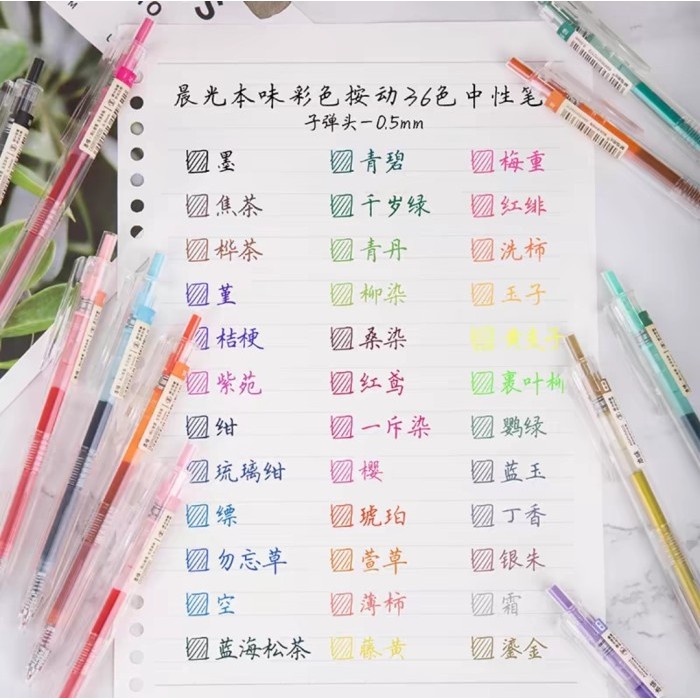 晨光本味彩色按动36色中性笔
子弹头-0.5mm
墨 青碧 梅重
焦茶 千岁绿 红绯
桦茶 青丹 洗柿
堇 柳染 玉子
桔梗 桑染 黄支子
紫苑 红鸢 裹叶柳
绀 一斥染 鹦绿
琉璃绀 樱 蓝玉
缥 琥珀 丁香
勿忘草 萱草 银朱
空 薄柿 霜
蓝海松茶 藤黄 鎏金